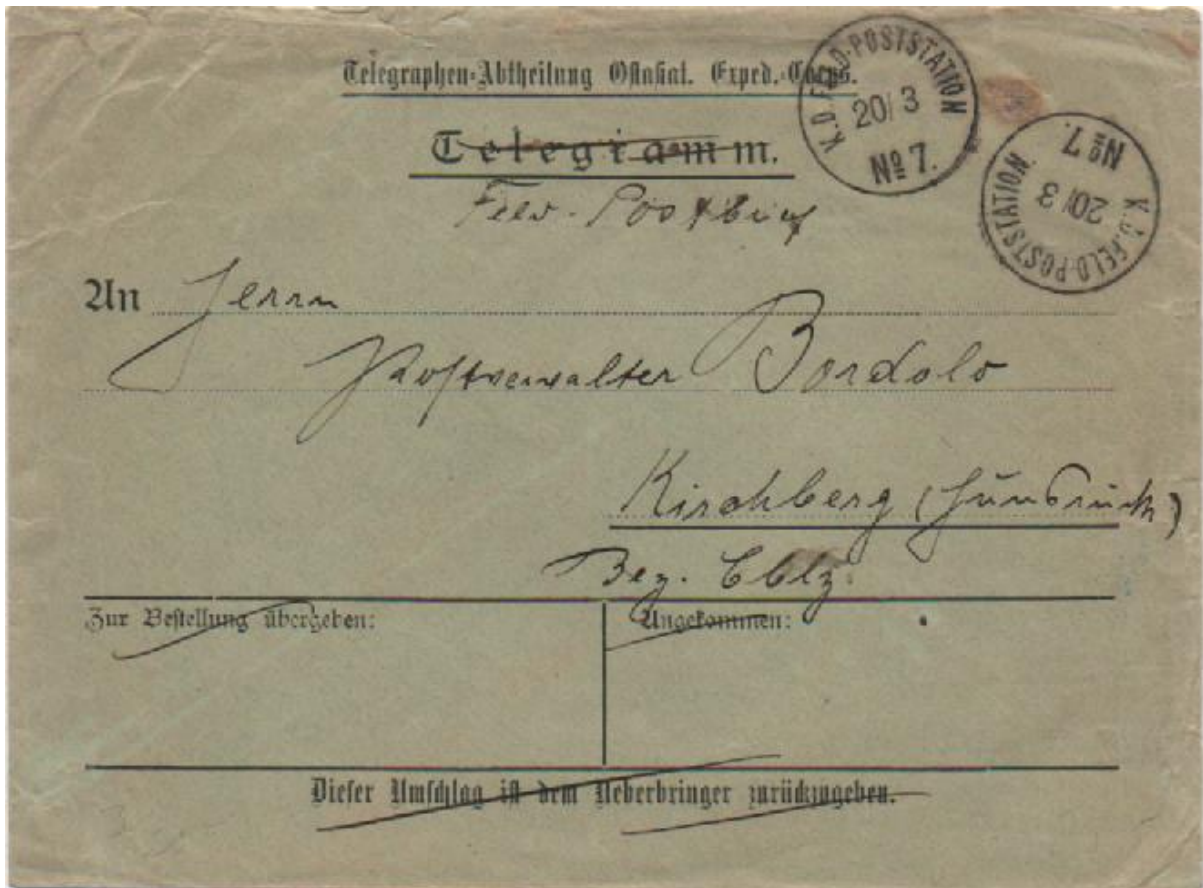 Telegraphen-Abtheilung Ostasiat. Exped.-Corps.
Telegramm.
Feld-Postbrief
K.D.FELD-POSTSTATION
20/3
No 7.
K.D.FELD-POSTSTATION
20/3
No 7.
An Herrn
Postverwalter Bordolo
Kirchberg (Hunsrück)
Bez. Cblz.
Zur Bestellung übergeben:
Angekommen:
Dieser Umschlag ist dem Ueberbringer zurückzugeben.